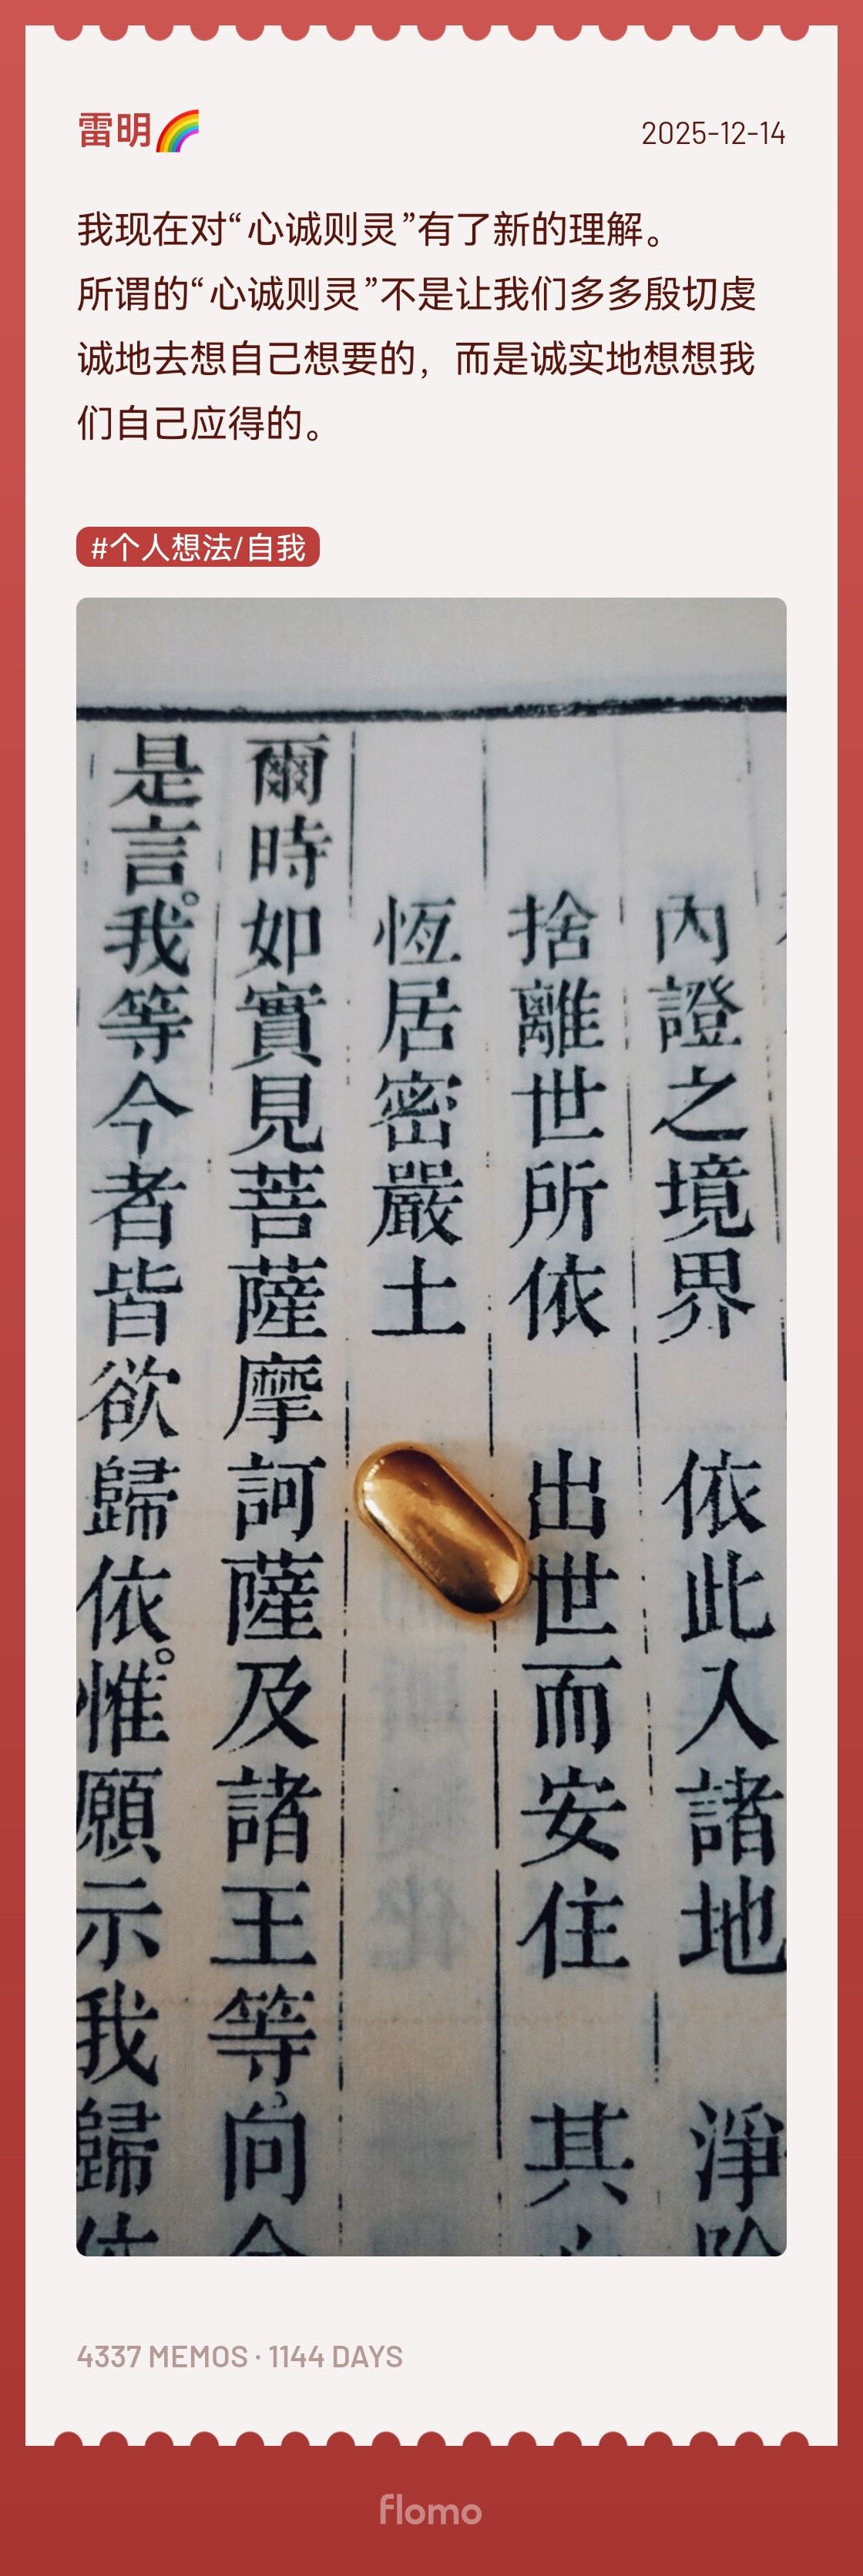 雷明🌈
2025-12-14
我现在对“心诚则灵”有了新的理解。
所谓的“心诚则灵”不是让我们多多殷切虔
诚地去想自己想要的，而是诚实地想想我
们自己应得的。
#个人想法/自我
內證之境界 依此人諸地 淨
捨離世所依 出世而安住 其
恆居密嚴土
爾時如實見菩薩摩訶薩及諸王等向
是言。我等今者皆欲歸依。惟願示我歸
4337 MEMOS · 1144 DAYS
flomo